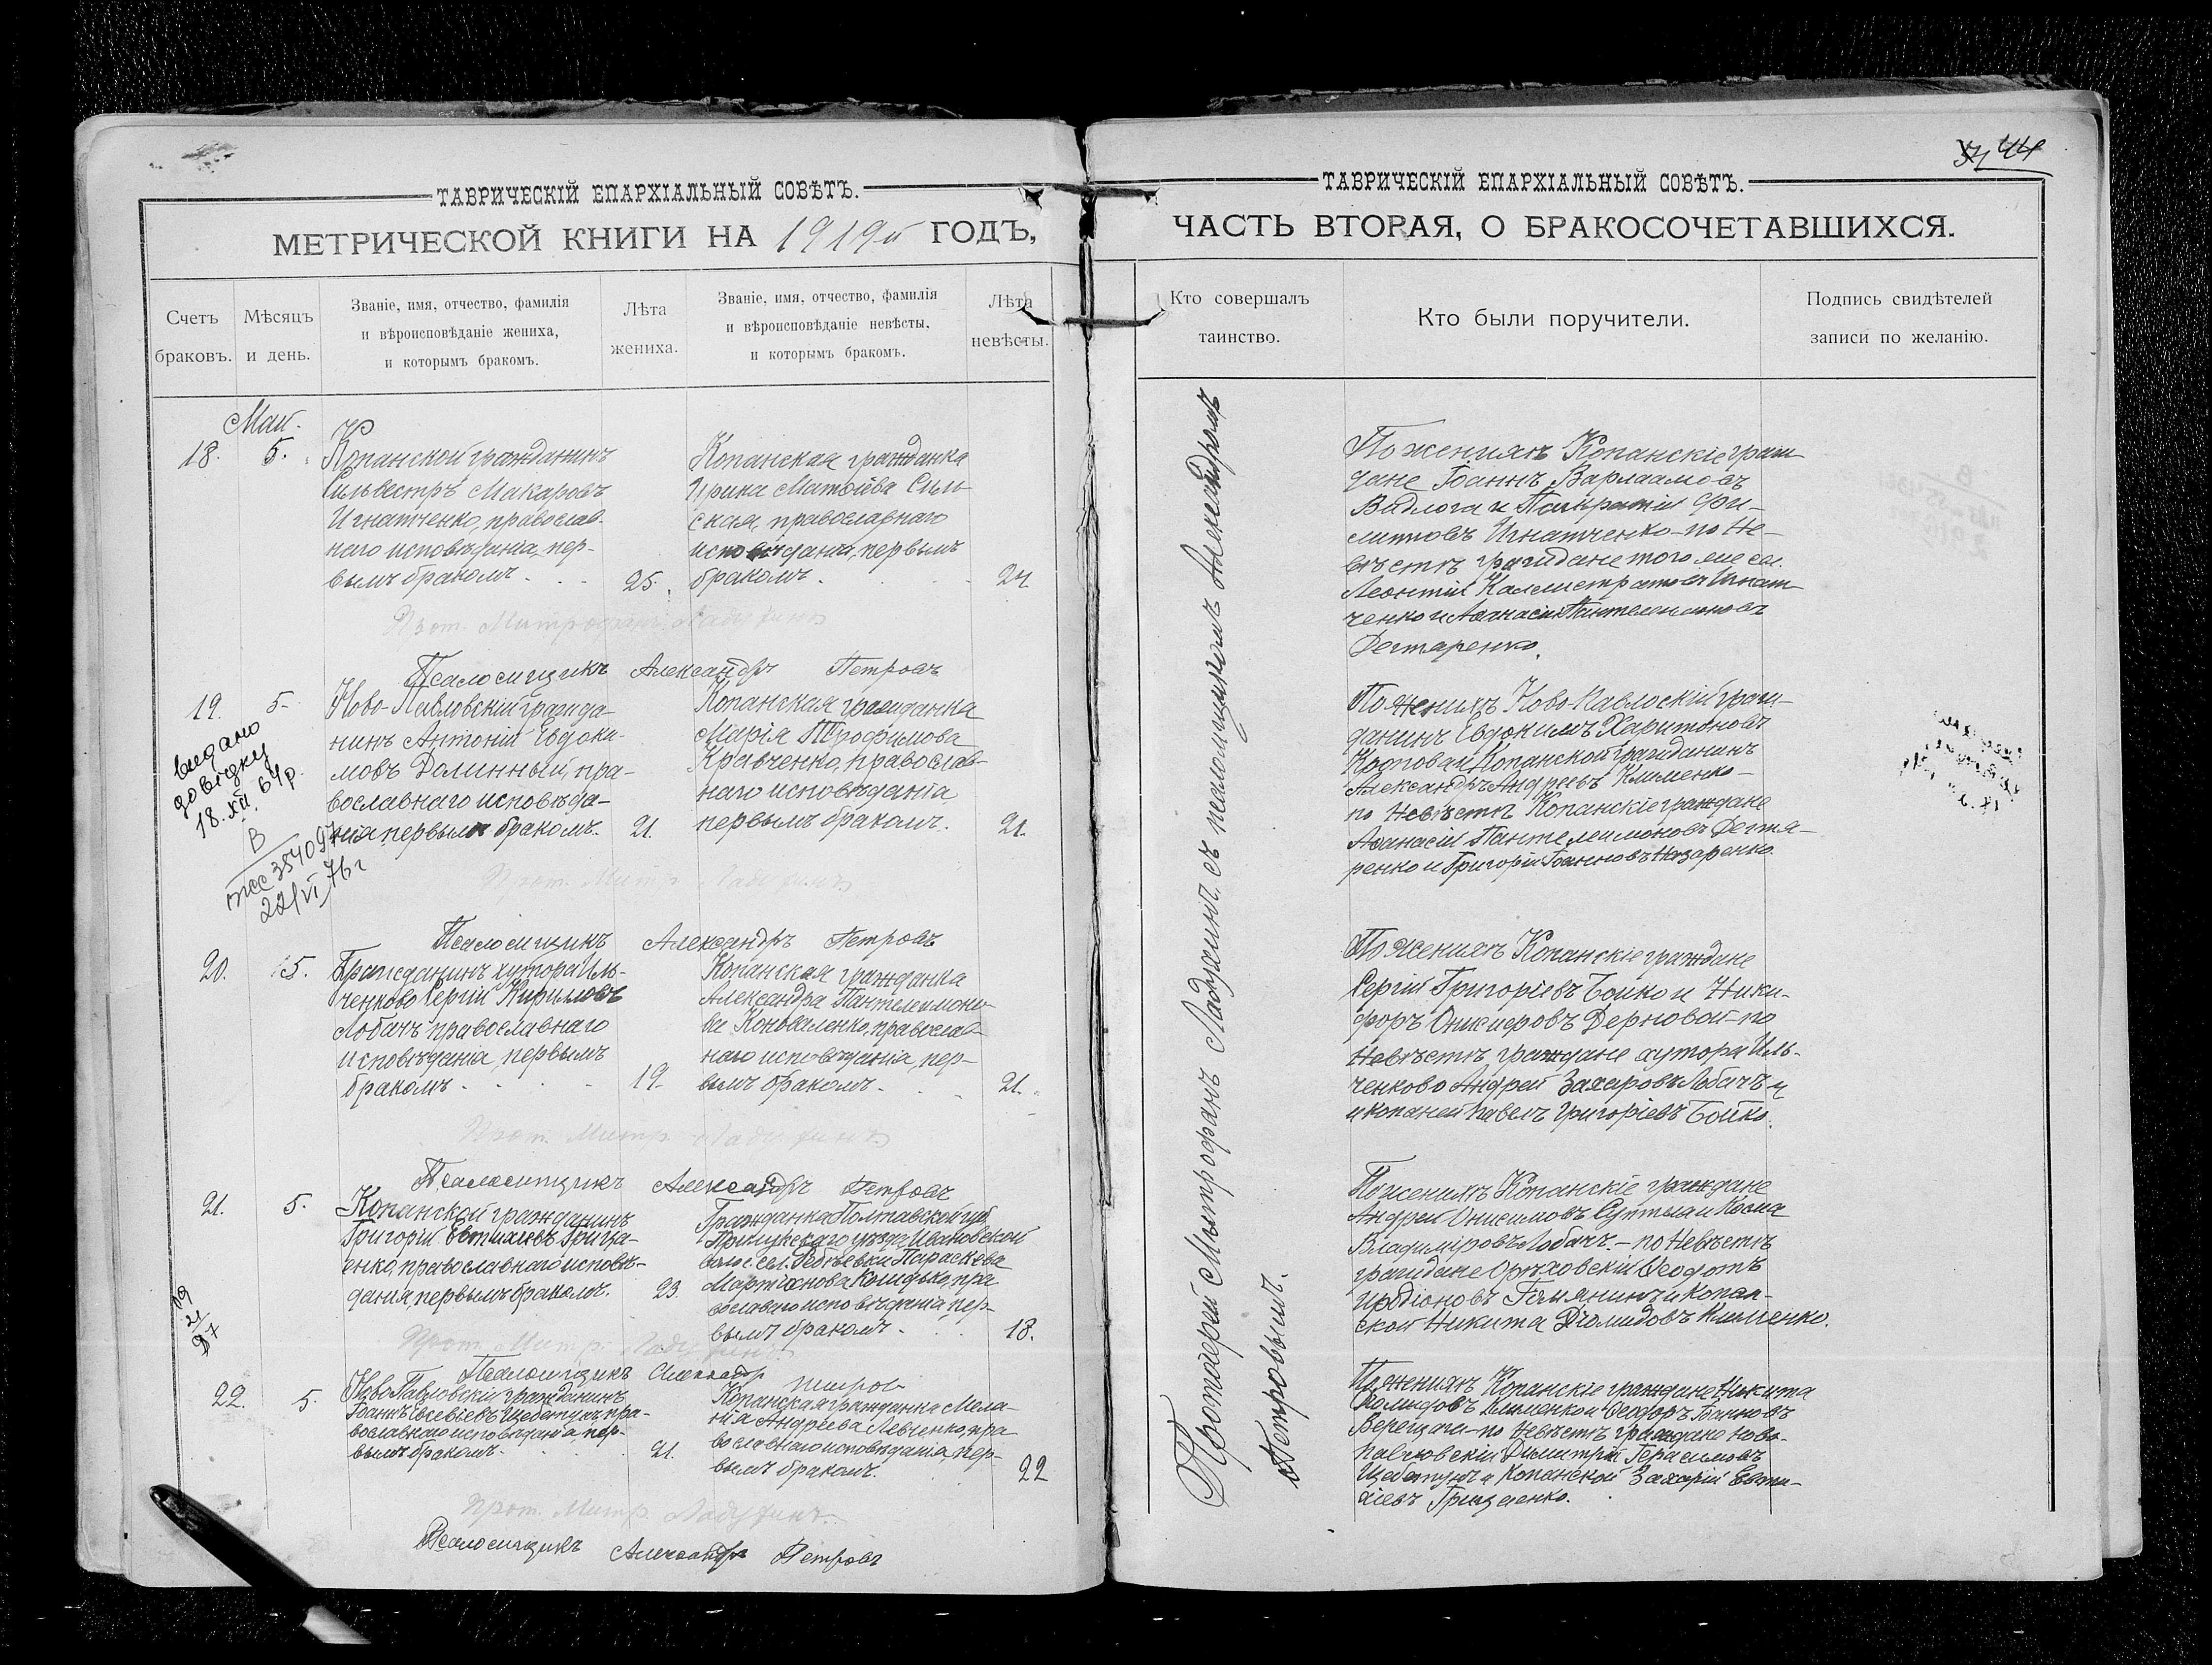 44
ТАВРИЧЕСКІЙ ЕПАРХІАЛЬНЫЙ СОВѢТЪ.
МЕТРИЧЕСКОЙ КНИГИ НА 1919й ГОДЪ,
Счетъ браковъ.
Мѣсяцъ и день.
Званіе, имя, отчество, фамилія
и вѣроисповѣданіе жениха,
и которымъ бракомъ.
Лѣта жениха.
Званіе, имя, отчество, фамилія
и вѣроисповѣданіе невѣсты,
и которымъ бракомъ.
Лѣта невѣсты.
Май.
18. 5.
Копанской гражданинъ
Сильвестръ Макаровъ
Игнатченко, православ-
наго исповѣданія, пер-
вымъ бракомъ. 25.
Копанская гражданка
Ирина Матѳіева Силь-
ская, православнаго
исповѣданія, первымъ
бракомъ. 24
Прот. Митрофанъ Ладухинъ
Псаломщикъ Александръ Петровъ
19. 5.
Ново-Павловскій гражда-
нинъ Антоній Евдоки-
мовъ Долинный, пра-
вославнаго исповѣда-
нія первымъ бракомъ. 21.
Копанская гражданка
Марія Трофимова
Кравченко, православ-
наго исповѣданія
первымъ бракомъ. 21.
видано
довідку
18.XII.64р.
В
22/VI 76г
Прот. Митр. Ладухинъ
Псаломщикъ Александръ Петровъ
20. 5.
Гражданинъ хутора Иль-
ченково Сергій Кириловъ
Лобачъ православнаго
исповѣданія, первымъ
бракомъ. 19.
Копанская гражданка
Александра Пантелеимоно-
ва Коноваленко, православ-
наго исповѣданія, пер-
вымъ бракомъ. 21.
Прот. Митр. Ладухинъ
Псаломщикъ Александръ Петровъ
21. 5.
Копанской гражданинъ
Григорій Евтихіевъ Грица-
енко, православнаго исповѣ-
данія, первымъ бракомъ. 23.
Гражданка Полтавской губ.
Прилукскаго уѣзда, Ивановской
волос. сел. Параскева
Мартинова пра
вославнаго исповѣданія, пер-
вымъ бракомъ. 18.
Прот. Митр. Ладухинъ
Псаломщикъ Александръ Петров
22. 5.
Ново Павловскій гражданинъ
Іоаннъ Евсевіевъ Щебетунъ, пра-
вославнаго исповѣданія, пер-
вымъ бракомъ. 21.
Копанская гражданка Мела-
нія Андреева Левченко, пра
вославнаго исповѣданія, пер-
вымъ бракомъ. 22
Прот. Митр. Ладухинъ
Псаломщикъ Александръ Петровъ
ТАВРИЧЕСКІЙ ЕПАРХІАЛЬНЫЙ СОВѢТЪ.
ЧАСТЬ ВТОРАЯ, О БРАКОСОЧЕТАВШИХСЯ.
Кто совершалъ таинство.
Кто были поручители.
Подпись свидѣтелей
записи по желанію.
Протоіерей Митрофанъ Ладухинъ, съ псаломщикомъ Александромъ
Петровымъ.
По женихѣ Копанскіе граж-
дане Іоаннъ Варлаамовъ
Видлога и Панкратій Фи-
липповъ Игнатченко - по Не-
вѣстѣ граждане того же сел.
Леонтій Каллистратовъ Игнат
ченко и Аѳанасій Пантелеимоновъ
Дегтяренко.
По женихѣ Ново-Павлоскій граж-
данинъ Евдокимъ Харитоновъ
Копанской гражданинъ
Александръ Андреевъ Клименко -
по Невѣстѣ Копанскіе граждане
Аѳанасій Пантелеимоновъ Дегтя-
ренко и Григорій Іоанновъ Назаренко.
По женихѣ Копанскіе граждане
Сергій Григоріевъ Бойко и Ники-
форъ Дерновой - по
Невѣстѣ, граждане хутора Иль-
ченково Андрей Захаровъ Лобачъ и
Копаней Павелъ Григоріевъ Бойко.
По женихѣ Копанскіе граждане
Андрей Онисимовъ и Косма
Владиміровъ Лобачъ. - по Невѣстѣ
граждане Орѣховскій Ѳеодотъ
Иродіоновъ и Копан-
ской Никита Діомидовъ Клименко.
По женихѣ Копанскіе граждане Никита
Діомидовъ Клименко и Ѳеодоръ Іоанновъ
Верещага - по Невѣстѣ граждане Ново-
павловскій Димитрій Герасимовъ
Щебетунъ и Копанской Захарій Евти-
хіевъ Грицаенко.